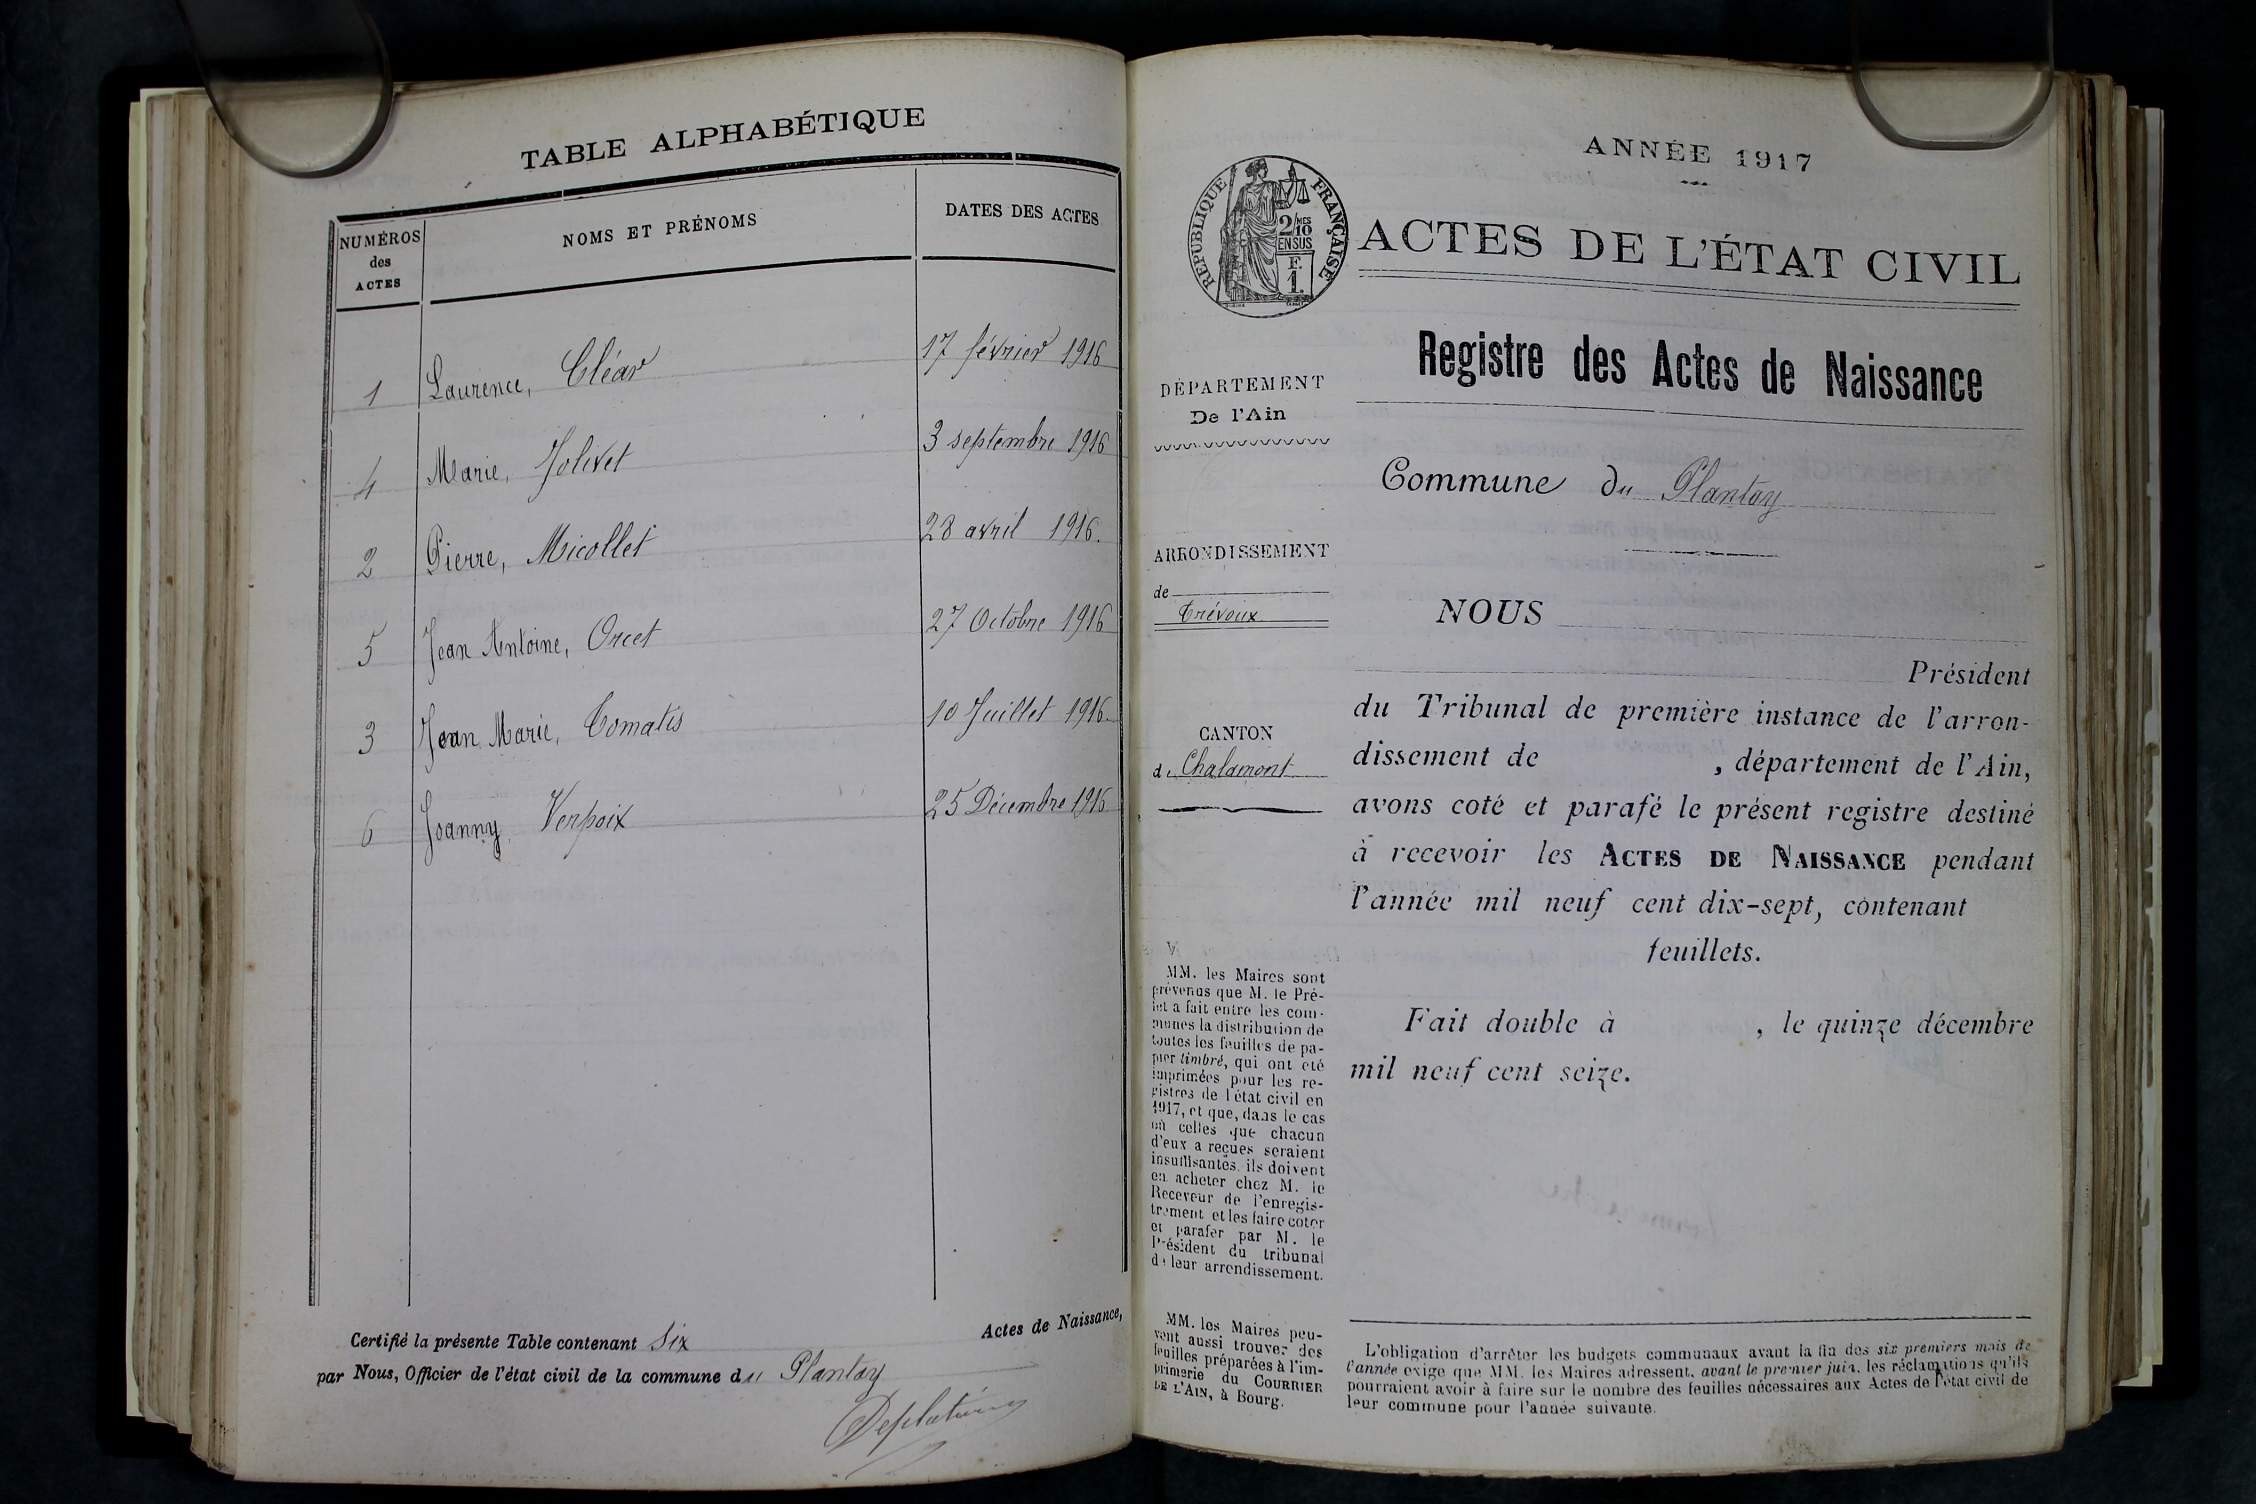 TABLE ALPHABÉTIQUE
NUMÉROS
des
ACTES
NOMS ET PRÉNOMS
DATES DES ACTES
1 Laurence, Cléar 17 février 1916
4 Marie, Jolivet 3 septembre 1916
2 Pierre, Micollet 28 avril 1916.
5 Jean Antoine, Orcet 27 Octobre 1916
3 Jean Marie, Comatis 10 Juillet 1916
6 Joanny, Verpoix 25 Décembre 1916
Certifié la présente Table contenant six Actes de Naissance,
par Nous, Officier de l'état civil de la commune du Plantay
ANNÉE 1917
RÉPUBLIQUE FRANÇAISE
2/10 MES
EN SUS
F.
1.
ACTES DE L'ÉTAT CIVIL
Registre des Actes de Naissance
DÉPARTEMENT
De l'Ain
Commune du Plantay
ARRONDISSEMENT
de
Trévoux
CANTON
de Chalamont
NOUS
Président
du Tribunal de première instance de l'arron-
dissement de , département de l'Ain,
avons coté et parafé le présent registre destiné
à recevoir les ACTES DE NAISSANCE pendant
l'année mil neuf cent dix-sept, contenant
feuillets.
Fait double à , le quinze décembre
mil neuf cent seize.
MM. les Maires sont
prévenus que M. le Pré-
fet a fait entre les com-
munes la distribution de
toutes les feuilles de pa-
pier timbré, qui ont été
imprimées pour les re-
gistres de l'état civil en
1917, et que, dans le cas
où celles que chacun
d'eux a reçues seraient
insuffisantes, ils doivent
en acheter chez M. le
Receveur de l'enregis-
trement et les faire coter
et parafer par M. le
Président du tribunal
de leur arrondissement.
MM. les Maires peu-
vent aussi trouver des
feuilles préparées à l'im-
primerie du COURRIER
DE L'AIN, à Bourg.
L'obligation d'arrêter les budgets communaux avant la fin des six premiers mois de
l'année exige que MM. les Maires adressent, avant le premier juin, les réclamations qu'ils
pourraient avoir à faire sur le nombre des feuilles nécessaires aux Actes de l'état civil de
leur commune pour l'année suivante.